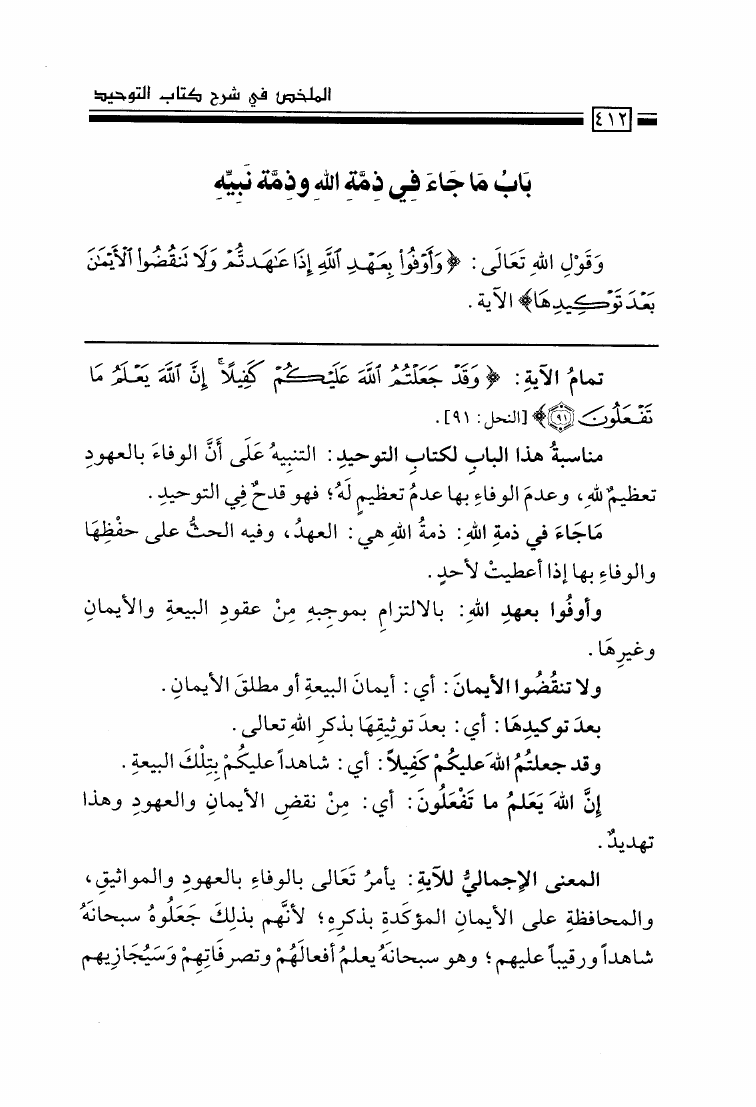 الملخص في شرح كتاب التوحيد
٤١٢
بَابُ مَا جَاءَ فِي ذِمَّةِ اللهِ وذِمَّة نَبِيِّهِ
وَقَوْلِ اللهِ تَعَالَى: ﴿وَأَوْفُواْ بِعَهْدِ ٱللَّهِ إِذَا عَٰهَدتُّمْ وَلَا تَنقُضُواْ ٱلْأَيْمَٰنَ
بَعْدَ تَوْكِيدِهَا﴾ الآية.
تمامُ الآيةِ: ﴿وَقَدْ جَعَلْتُمُ ٱللَّهَ عَلَيْكُمْ كَفِيلًاۚ إِنَّ ٱللَّهَ يَعْلَمُ مَا
تَفْعَلُونَ ٩١﴾ [النحل: ٩١].
مناسبةُ هذا البابِ لكتابِ التوحيدِ: التنبيهُ عَلَى أنَّ الوفاءَ بالعهودِ
تعظيمٌ للهِ، وعدمَ الوفاءِ بها عدمُ تعظيمٍ لَهُ؛ فهو قدحٌ فِي التوحيدِ.
مَاجَاءَ في ذمةِ اللهِ: ذمةُ اللهِ هي: العهدُ، وفيه الحثُّ على حفْظِهَا
والوفاءِ بها إذا أعطيتْ لأحدٍ.
وأوفُوا بعهدِ اللهِ: بالالتزامِ بموجبِهِ مِنْ عقودِ البيعةِ والأيمانِ
وغيرِهَا.
ولا تنقُضُوا الأيمانَ: أي: أيمانَ البيعةِ أو مطلقَ الأيمانِ.
بعدَ توكيدِهَا: أي: بعدَ توثيقِهَا بذكرِ اللهِ تعالى.
وقد جعلتُمُ اللهَ عليكُمْ كَفيلاً: أي: شاهداً عليكُمْ بِتِلْكَ البيعةِ.
إنَّ اللهَ يَعَلمُ ما تَفْعَلُونَ: أي: مِنْ نقضِ الأيمانِ والعهودِ وهذا
تهديدٌ.
المعنى الإجماليُّ للآيةِ: يأمرُ تَعَالى بالوفاءِ بالعهودِ والمواثيقِ،
والمحافظةِ على الأيمانِ المؤكَدةِ بذكرِهِ؛ لأنَّهم بذلِكَ جَعَلُوهُ سبحانَهُ
شاهداً ورقيباً عليهم؛ وهو سبحانَهُ يعلمُ أفعالَهُمْ وتصرفَاتِهِمْ وَسَيُجَازِيهم